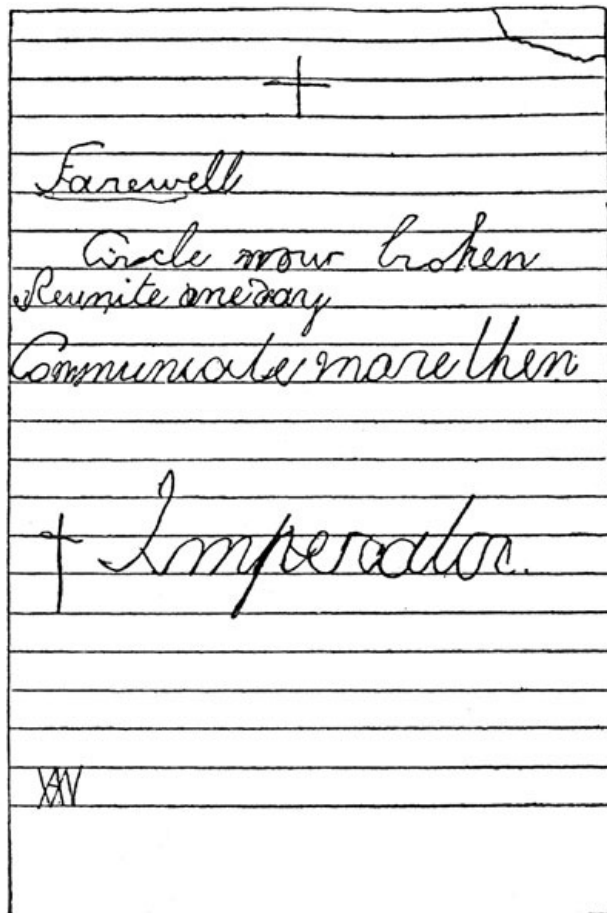 Farewell
Circle now broken
Reunite one day
Communicate more then
Imperator.